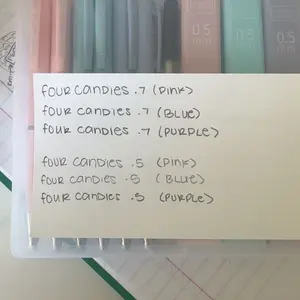 0.5
0.5
mm
four candies .7 (Pink)
four candies .7 (Blue)
four candies .7 (Purple)
four candies .5 (Pink)
four candies .5 (Blue)
four candies .5 (Purple)